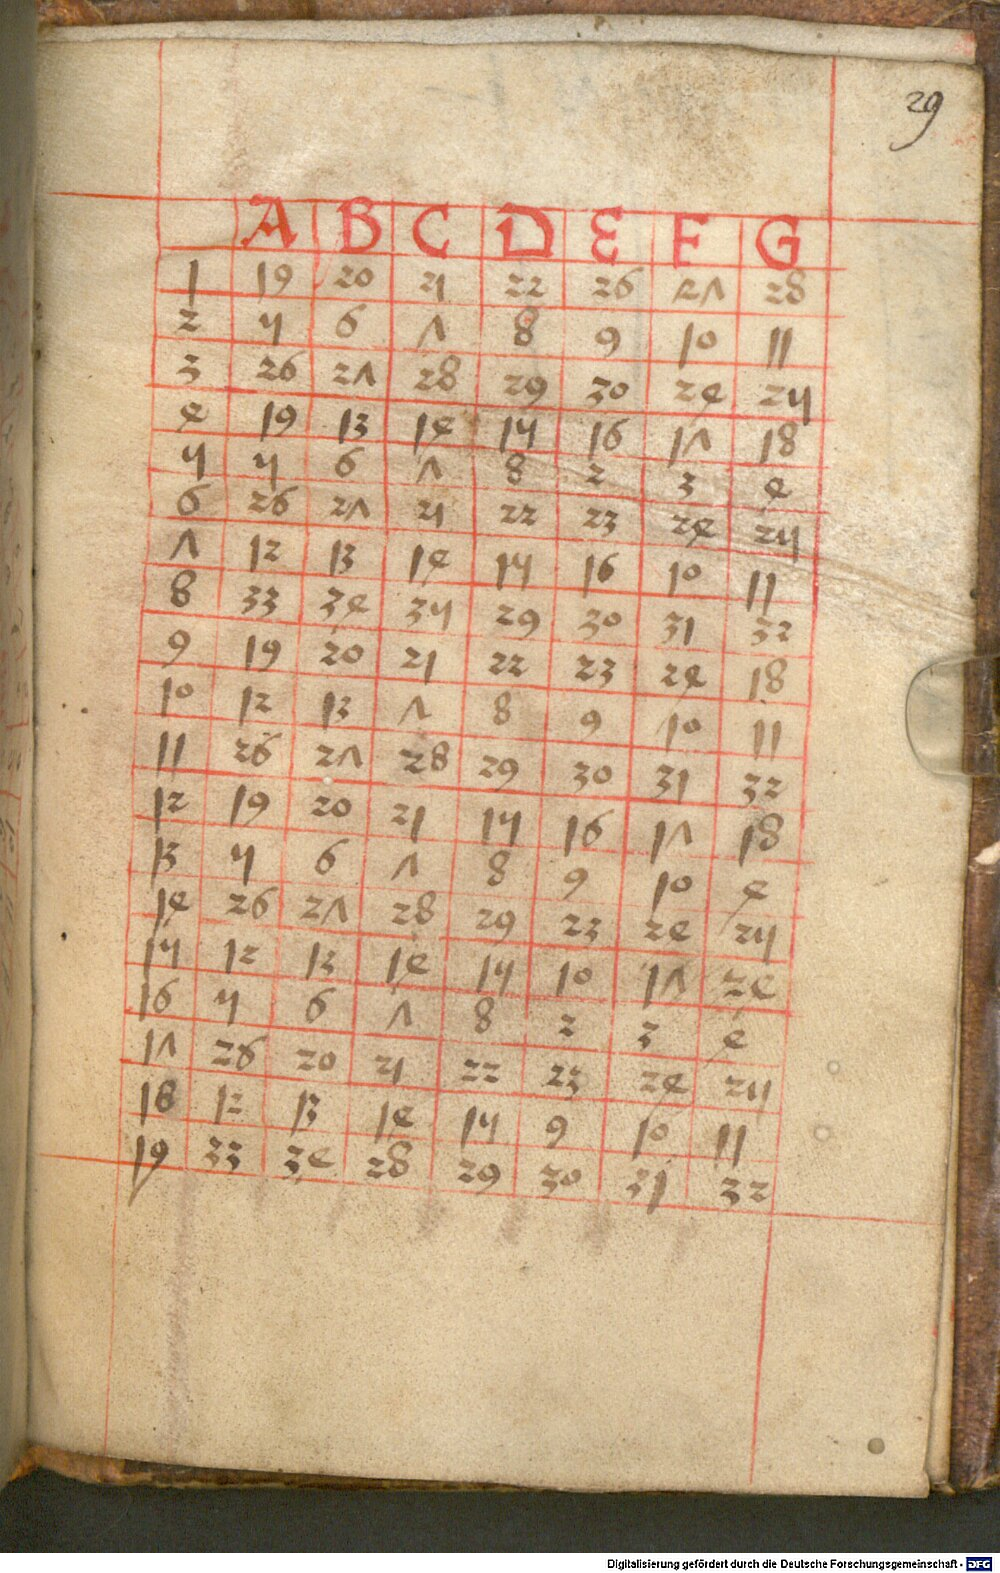 29
A B C D E F G
1 19 20 21 22 26 27 28
2 5 6 7 8 9 10 11
3 26 27 28 29 30 24 25
4 19 13 14 15 16 17 18
5 5 6 7 8 2 3 4
6 26 27 21 22 23 24 25
7 12 13 14 15 16 10 11
8 33 34 35 29 30 31 32
9 19 20 21 22 23 24 18
10 12 13 7 8 9 10 11
11 26 27 28 29 30 31 32
12 19 20 21 15 16 17 18
13 5 6 7 8 9 10 4
14 26 27 28 29 23 24 25
15 12 13 14 15 10 17 24
16 5 6 7 8 2 3 4
17 26 20 21 22 23 24 25
18 12 13 14 15 9 10 11
19 33 34 28 29 30 31 32
Digitalisierung gefördert durch die Deutsche Forschungsgemeinschaft - DFG